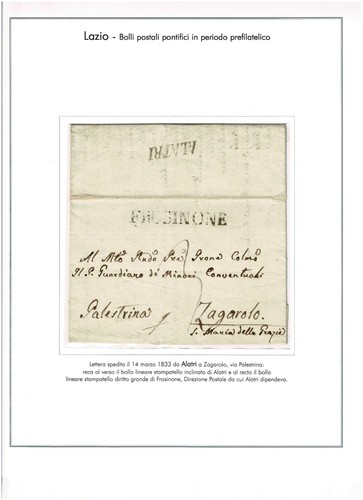 Lazio - Bolli postali pontifici in periodo prefilatelico
ALATRI
FROSINONE
Al Mto Rndo Pre Prone Colmo
Il P. Guardiano de' Minori Conventuali
Palestrina Zagarolo.
S. Maria delle Grazie
Lettera spedita il 14 marzo 1833 da Alatri a Zagarolo, via Palestrina:
reca al verso il bollo lineare stampatello inclinato di Alatri e al recto il bollo
lineare stampatello diritto grande di Frosinone, Direzione Postale da cui Alatri dipendeva.